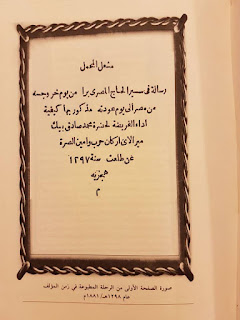 مشعل المحمل
رسالة فى سير الحاج المصرى برا من يوم خروجه
من مصر الى يوم عودته مذكور بها كيفية
اداء الفريضة لحضرة محمد صادق بيك
ميرالاى اركان حرب وامين الصرة
عن طلعت سنة ١٢٩٧
هجريه
م
صورة الصفحة الأولى من الرحلة المطبوعة في زمن المؤلف
عام ١٢٩٨هـ/ ١٨٨١م.